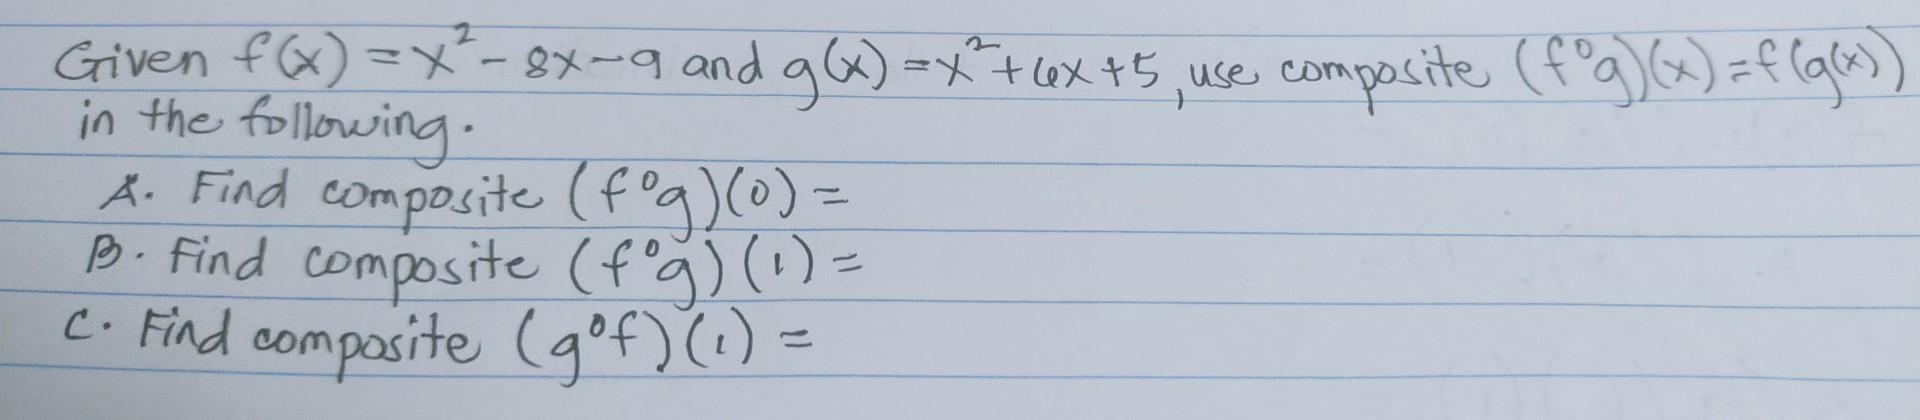 Given f(x) = x² - 8x - 9 and g(x) = x² + 6x + 5, use composite (f°g)(x) = f(g(x))
in the following.
A. Find composite (f°g)(0) =
B. Find composite (f°g)(1) =
C. Find composite (g°f)(1) =